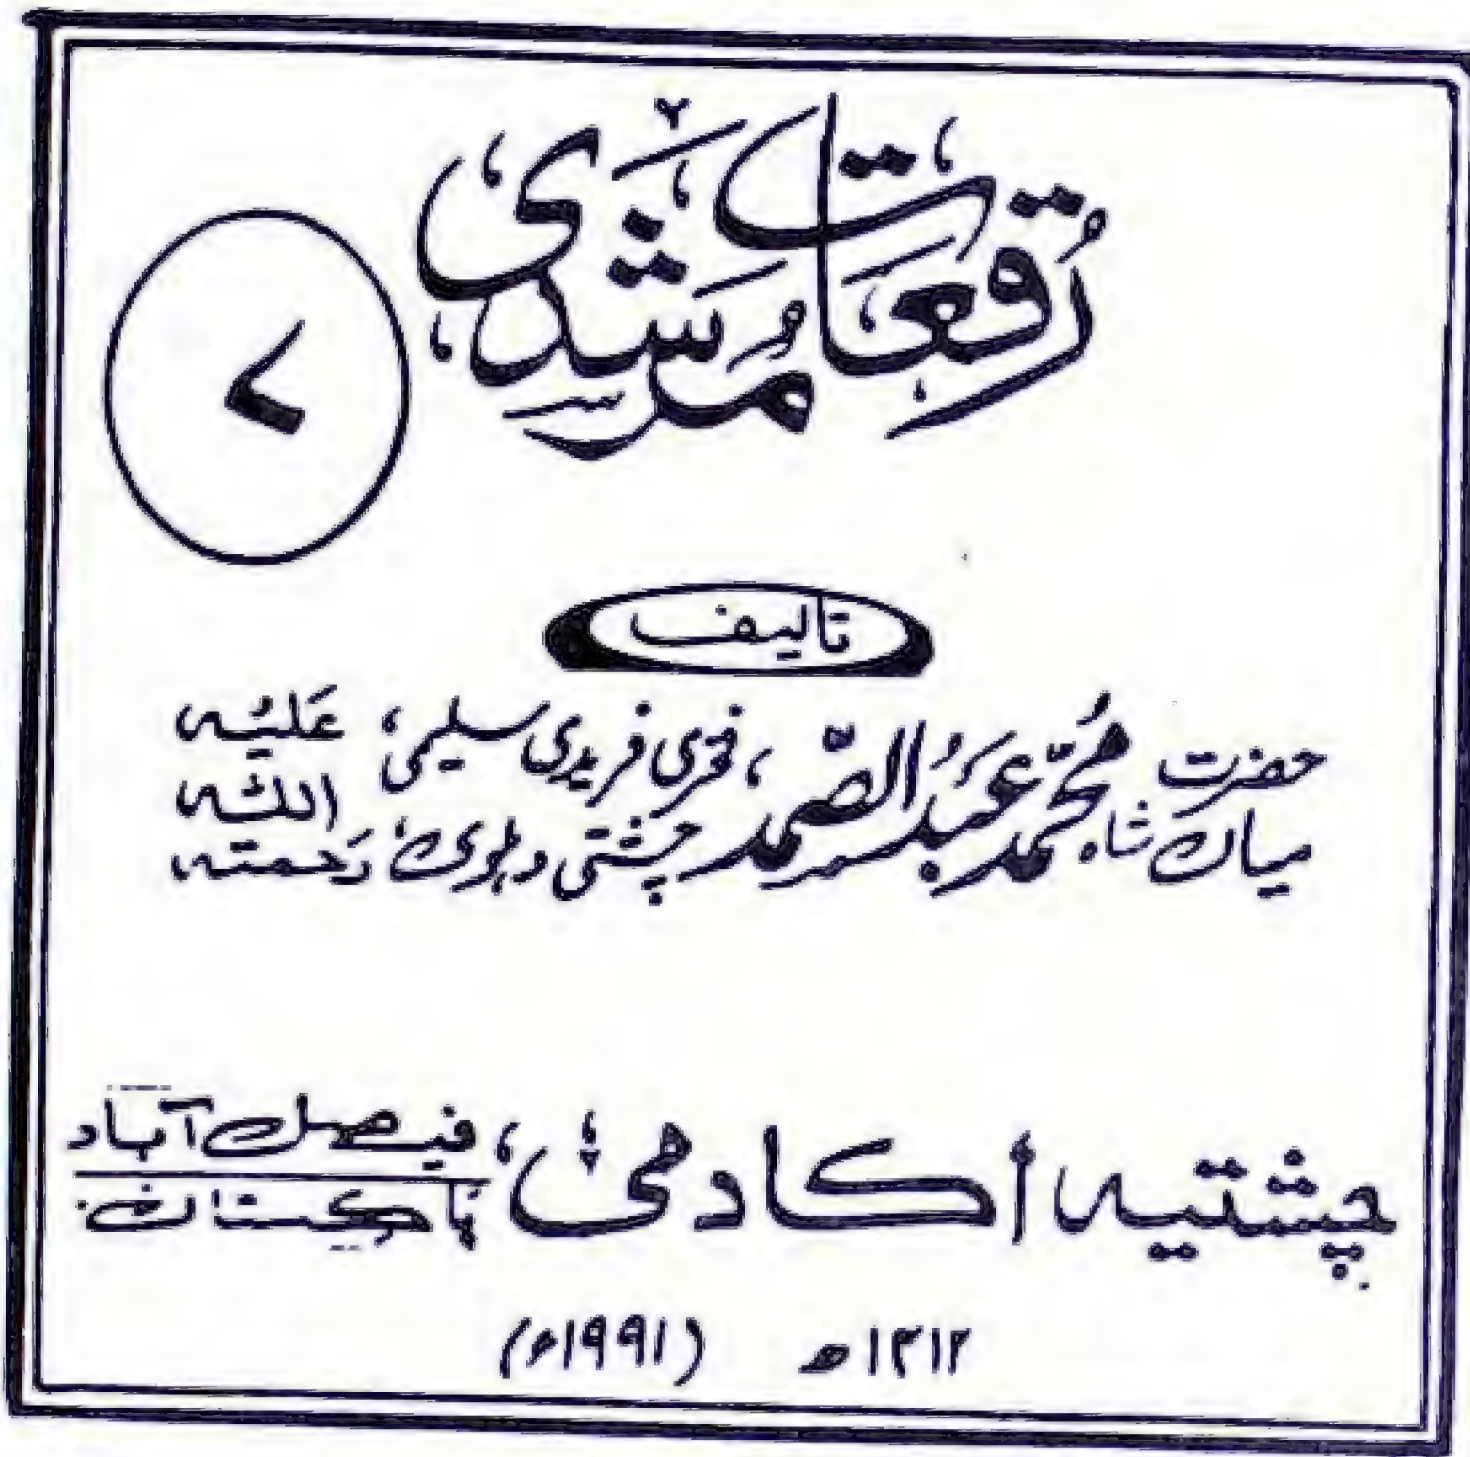 رُقعاتِ مُرشدی
۷
تالیف
حضرت میاں شاہ محمّد عبدُ الصّمد، فخری فریدی سلیمی، چشتی دہلوی، رَحمتہ اللہ عَلیہ
چشتیہ اکادمی، فیصل آباد پاکستان
۱۴۱۲ھ (۱۹۹۱ء)